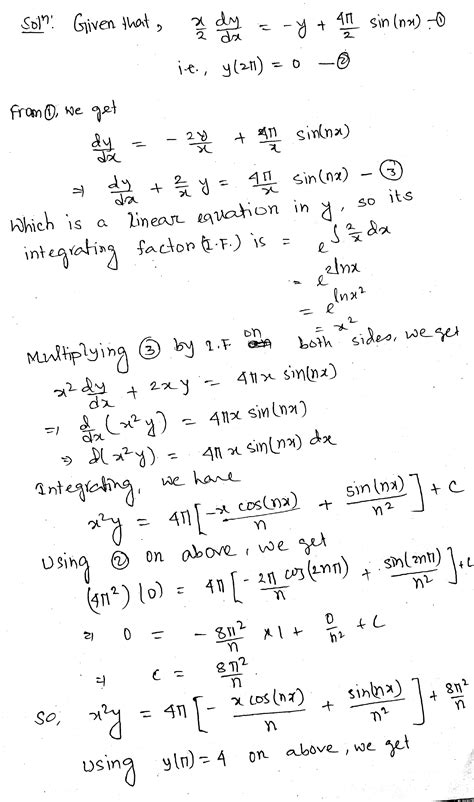 Solⁿ: Given that, x/2 dy/dx = -y + 4π/2 sin(nx) -①
i.e., y(2π) = 0 -②
From①, we get
dy/dx = - 2y/x + 4π/x sin(nx)
⇒ dy/dx + 2/x y = 4π/x sin(nx) - ③
Which is a linear equation in y, so its
integrating factor (I.F.) is = e^∫ 2/x dx
= e^2lnx
= e^lnx²
= x²
Multiplying ③ by I.F on both sides, we get
x² dy/dx + 2xy = 4πx sin(nx)
⇒ d/dx (x²y) = 4πx sin(nx)
⇒ d(x²y) = 4πx sin(nx) dx
Integrating, we have
x²y = 4π[-x cos(nx)/n + sin(nx)/n²] + C
Using ② on above, we get
(4π²)(0) = 4π[- 2π/n cos(2nπ) + sin(2nπ)/n²] + C
⇒ 0 = - 8π²/n × 1 + 0/n² + C
⇒ C = 8π²/n
So, x²y = 4π[- x cos(nx)/n + sin(nx)/n²] + 8π²/n
Using y(π) = 4 on above, we get